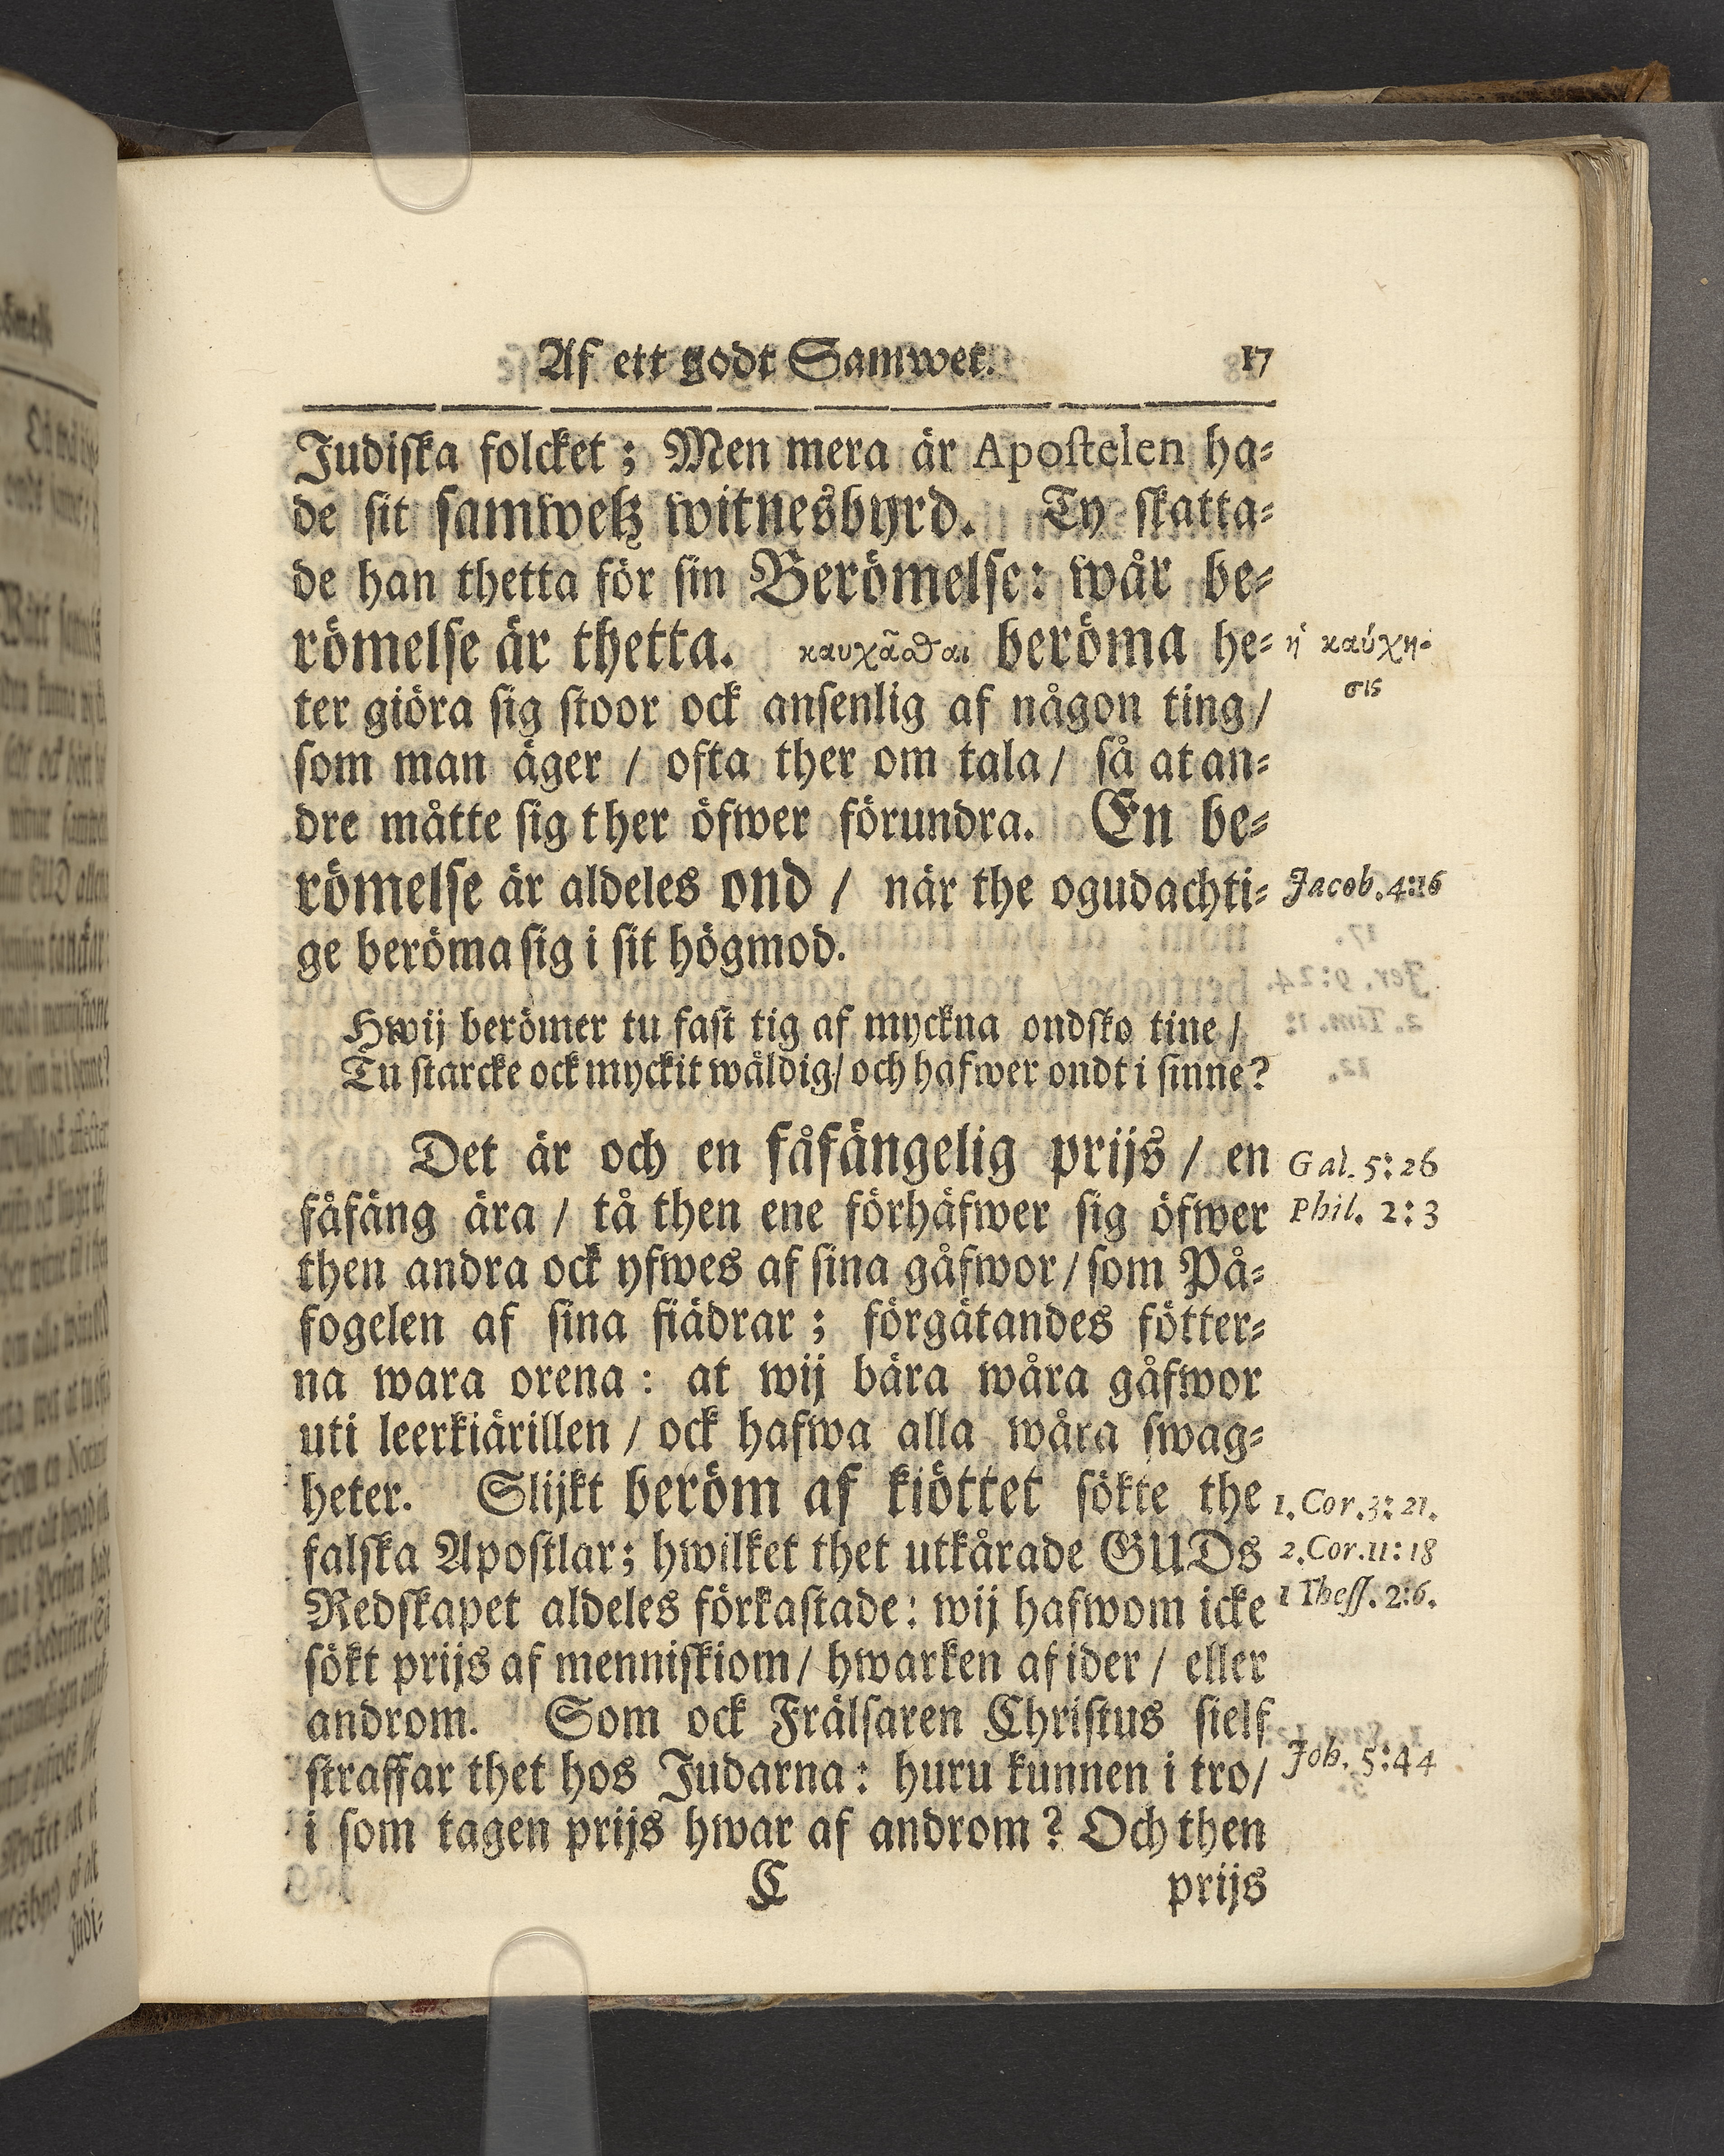 Af ett godt Samwet. 17
Judiſka folcket; Men mera är Apoſtelen ha-
de ſit ſamwetz witnesbyrd. Ty ſkatta-
de han thetta för ſin Berömelſe: wår be-
römelſe är thetta. καυχᾶσθαι beröma he- ἡ καύχη-
σις
ter giöra ſig ſtoor ock anſenlig af någon ting/
ſom man äger / ofta ther om tala/ ſå at an-
dre måtte ſig ther öfwer förundra. En be-
römelſe är aldeles ond / när the ogudachti- Jacob. 4:16
ge beröma ſig i ſit högmod.
Hwij berömer tu faſt tig af myckna ondſko tine /
Tu ſtarcke ock myckit wäldig/ och hafwer ondt i ſinne?
Det är och en fåfängelig prijs / en Gal. 5:26
fåfäng ära / tå then ene förhäfwer ſig öfwer Phil. 2:3
then andra ock yfwes af ſina gåfwor/ ſom På-
fogelen af ſina fiädrar; förgätandes fötter-
na wara orena: at wij bära wåra gåfwor
uti leerkiärillen / ock hafwa alla wåra ſwag-
heter. Slijkt beröm af kiöttet ſökte the 1. Cor. 3:21.
falſka Apoſtlar; hwilket thet utkårade GUDs 2. Cor. 11:18
Redſkapet aldeles förkaſtade: wij hafwom icke 1 Theſſ. 2:6.
ſökt prijs af menniſkiom/ hwarken af ider / eller
androm. Som ock Frälſaren Chriſtus ſielf
ſtraffar thet hos Judarna: huru kunnen i tro/ Joh. 5:44
i ſom tagen prijs hwar af androm? Och then
C prijs